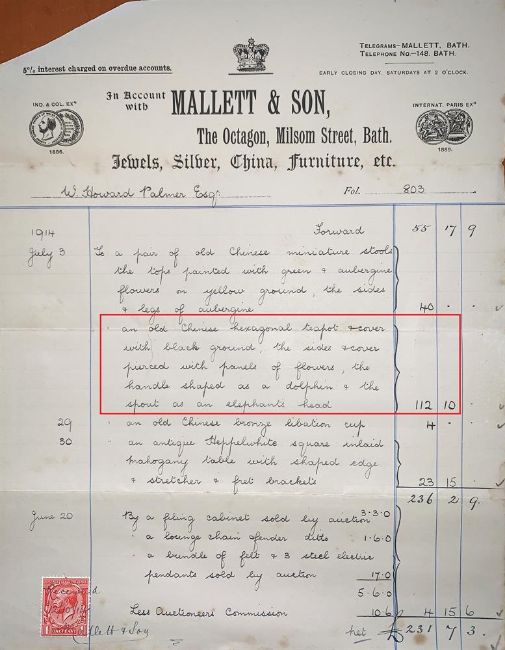 TELEGRAMS—MALLETT, BATH.
TELEPHONE No.—148. BATH.
5°/. interest charged on overdue accounts.
EARLY CLOSING DAY, SATURDAYS AT 2 O'CLOCK.
In Account with
MALLETT & SON,
IND. & COL. EXN
1886.
INTERNAT. PARIS EXN
1889.
The Octagon, Milsom Street, Bath.
Jewels, Silver, China, Furniture, etc.
W. Howard Palmer Esqr. Fol. 803
1914 Forward 55 17 9
July 3 To a pair of old Chinese miniature stools
the tops painted with green & aubergine
flowers on yellow ground, the sides
& legs of aubergine 40 . .
" an old Chinese hexagonal teapot & cover
with black ground, the sides & cover
pierced with panels of flowers, the
handle shaped as a dolphin & the
spout as an elephants head 112 10 .
29 " an old Chinese bronze libation cup 4 . .
30 " an antique Heppelwhite square inlaid
mahogany table with shaped edge
& stretcher & fret brackets 23 15 .
236 2 9.
June 20 By a filing cabinet sold by auction 3.3.0
" a lounge chair & fender ditto 1.6.0
" a bundle of felt & 3 steel electric
pendants sold by auction 17.0
5.6.0
Less Auctioneers Commission 10.6 4 15 6
net £ 231 7 3.
Received
Mallett & Son